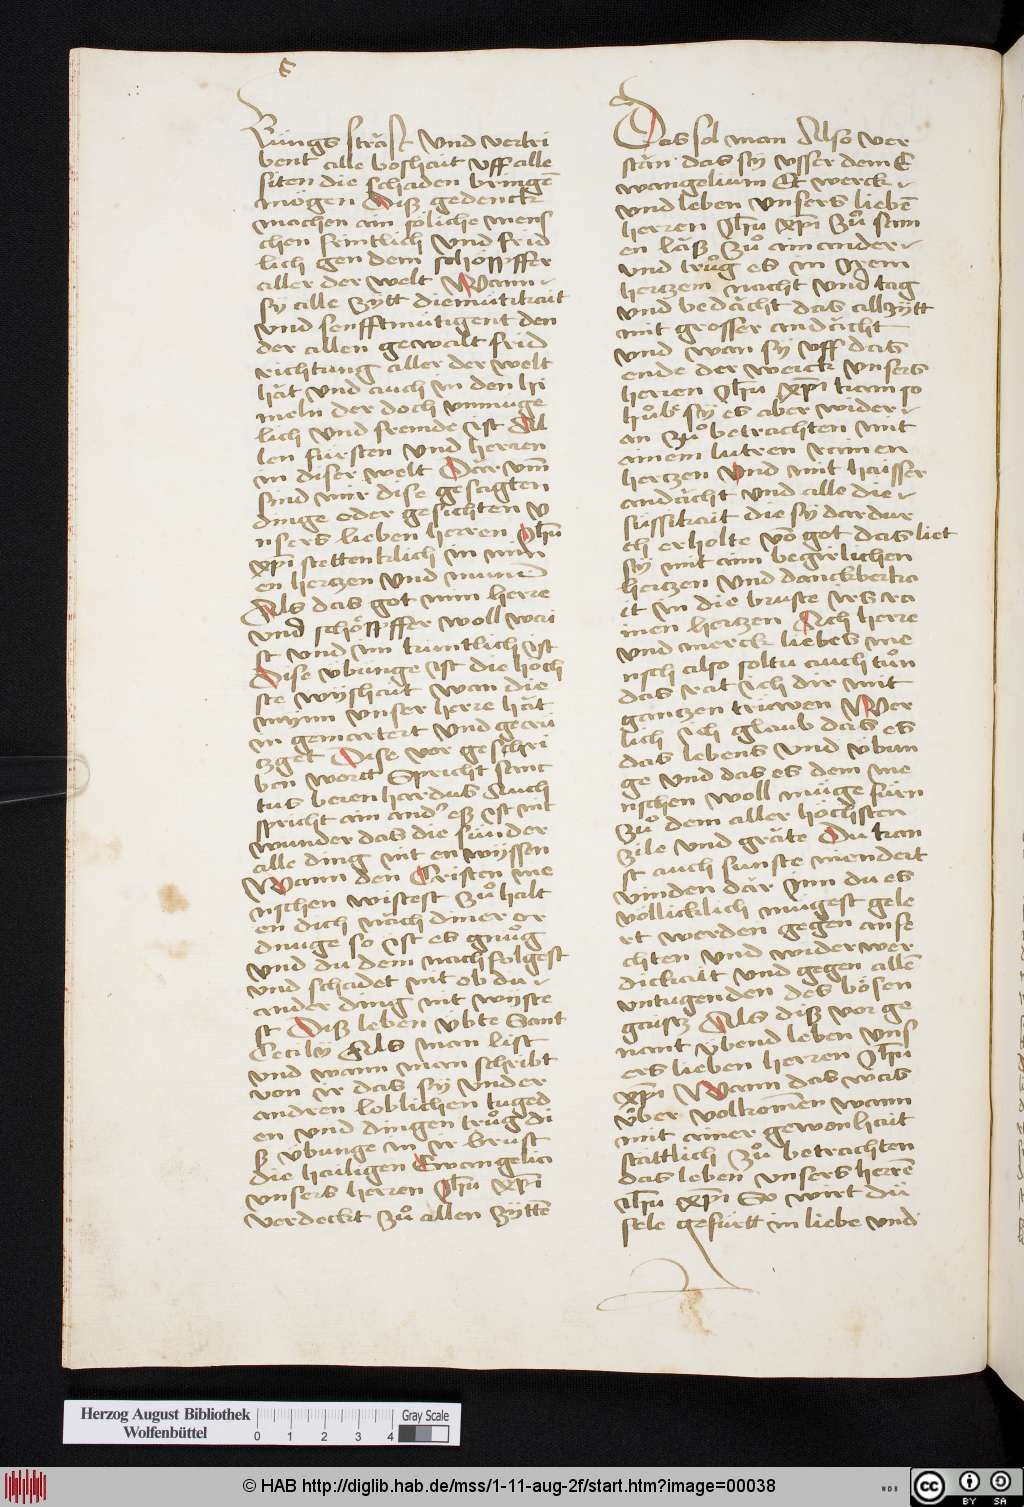 E
Küngs sträft vnd vertri
bent alle boshait vff alle
siten die schaden bringē
mögen Disz gedenck
machen ain söliche mens
chen frintlich vnd frid
lich gen dem schöpffer
aller der welt Wann
sÿ alle zÿtt diemütikait
vnd senfftmütigent den
der allen gewalt frid
richtung aller der welt
hät vnd auch in den hi
meln der doch vnmüge
lich vnd fremde ist Al
len fürsten vnd herren
in diser welt Där vm̄
sind mir dise gesagten
dinge oder gesichten v
nsers lieben herren Jhū
xp̄i stettenklich in min
en hertzen vnd mund
Als das got min herre
vnd schöpffer woll wai
st vnd im kuntlich ist
Dise übunge ist die höch
ste wÿshait wan die
wÿnn vnser herre hät
in gemartert vnd gecrü
zget Dise vor geschri
ben wortt spricht sanc
tus berenhardus Auch
spricht ain and' esz ist nit
wunder das die sünder
alle ding nit en wÿssen
Wann den Cristen me
nschen wistest zů halt
en dich näch diner or
dnuge so ist es gnůg
vnd du dem nachfolgest
vnd schadet nit ob du
ander ding nit wÿste
st Disz leben übte Sant
Cecilÿ Als man list
vnd wann man schribt
von ir das sÿ vnder
andren loblichen tuged
en vnd dingen trůg di
sz übunge in ir brust
die hailigen Ewangelia
vnsers herren Jhū xp̄i
verdeckt zů allen zÿttē
Das sol man Also ver
stän das sÿ vsser dem E
wangelium Et werck
vnd leben vnsers liebē
herren Jhū xp̄i zů sam
en läsz zů ainander
vnd trůg es in Irem
hertzem nacht vnd tag
vnd bedächt das allzÿtt
mit grosser andächt
vnd wan sÿ vff das
ende der werck vnsers
herren Jhū xp̄i kam so
hůb sÿ es aber wider
an zů betrachten mit
ainem lutren rainen
hertzen Vnd mit haisser
andächt vnd alle die
süssikait die sÿ dardur
ch erholte vō got das liet
sÿ mit aim begirlichen
hertzen vnd danckberka
it in die bruste irs ra
inen hertzen Ach herre
vnd merck liebes me
nsch also soltu auch tůn
das rat ich dir mit
gantzen triuwen Wer
lich ich glaub das es
das lebens vnd übun
ge vnd das es dem me
nschen woll müge fürn
zů dem aller höchsten
zile vnd gräte Du kan
st auch sunste niendert
vinden där Inn du es
völlicklich mügest gele
rt werden gegen anfe
chten vnd wider wer
dickait vnd gegen allē
vntugenden des bösen
gaistz Als disz vor ge
nant übend leben vns
ers lieben herren Jhū
xp̄i Wann das was
über volkomen wann
mit ainer gewonhait
stättlich zů betrachten
das leben vnsers herrē
Jhū xp̄i So wirt dü
sele gefürtt in liebe vnd
Herzog August Bibliothek
Wolfenbüttel
0 1 2 3 4
Gray Scale
© HAB http://diglib.hab.de/mss/1-11-aug-2f/start.htm?image=00038
WDB
cc BY SA